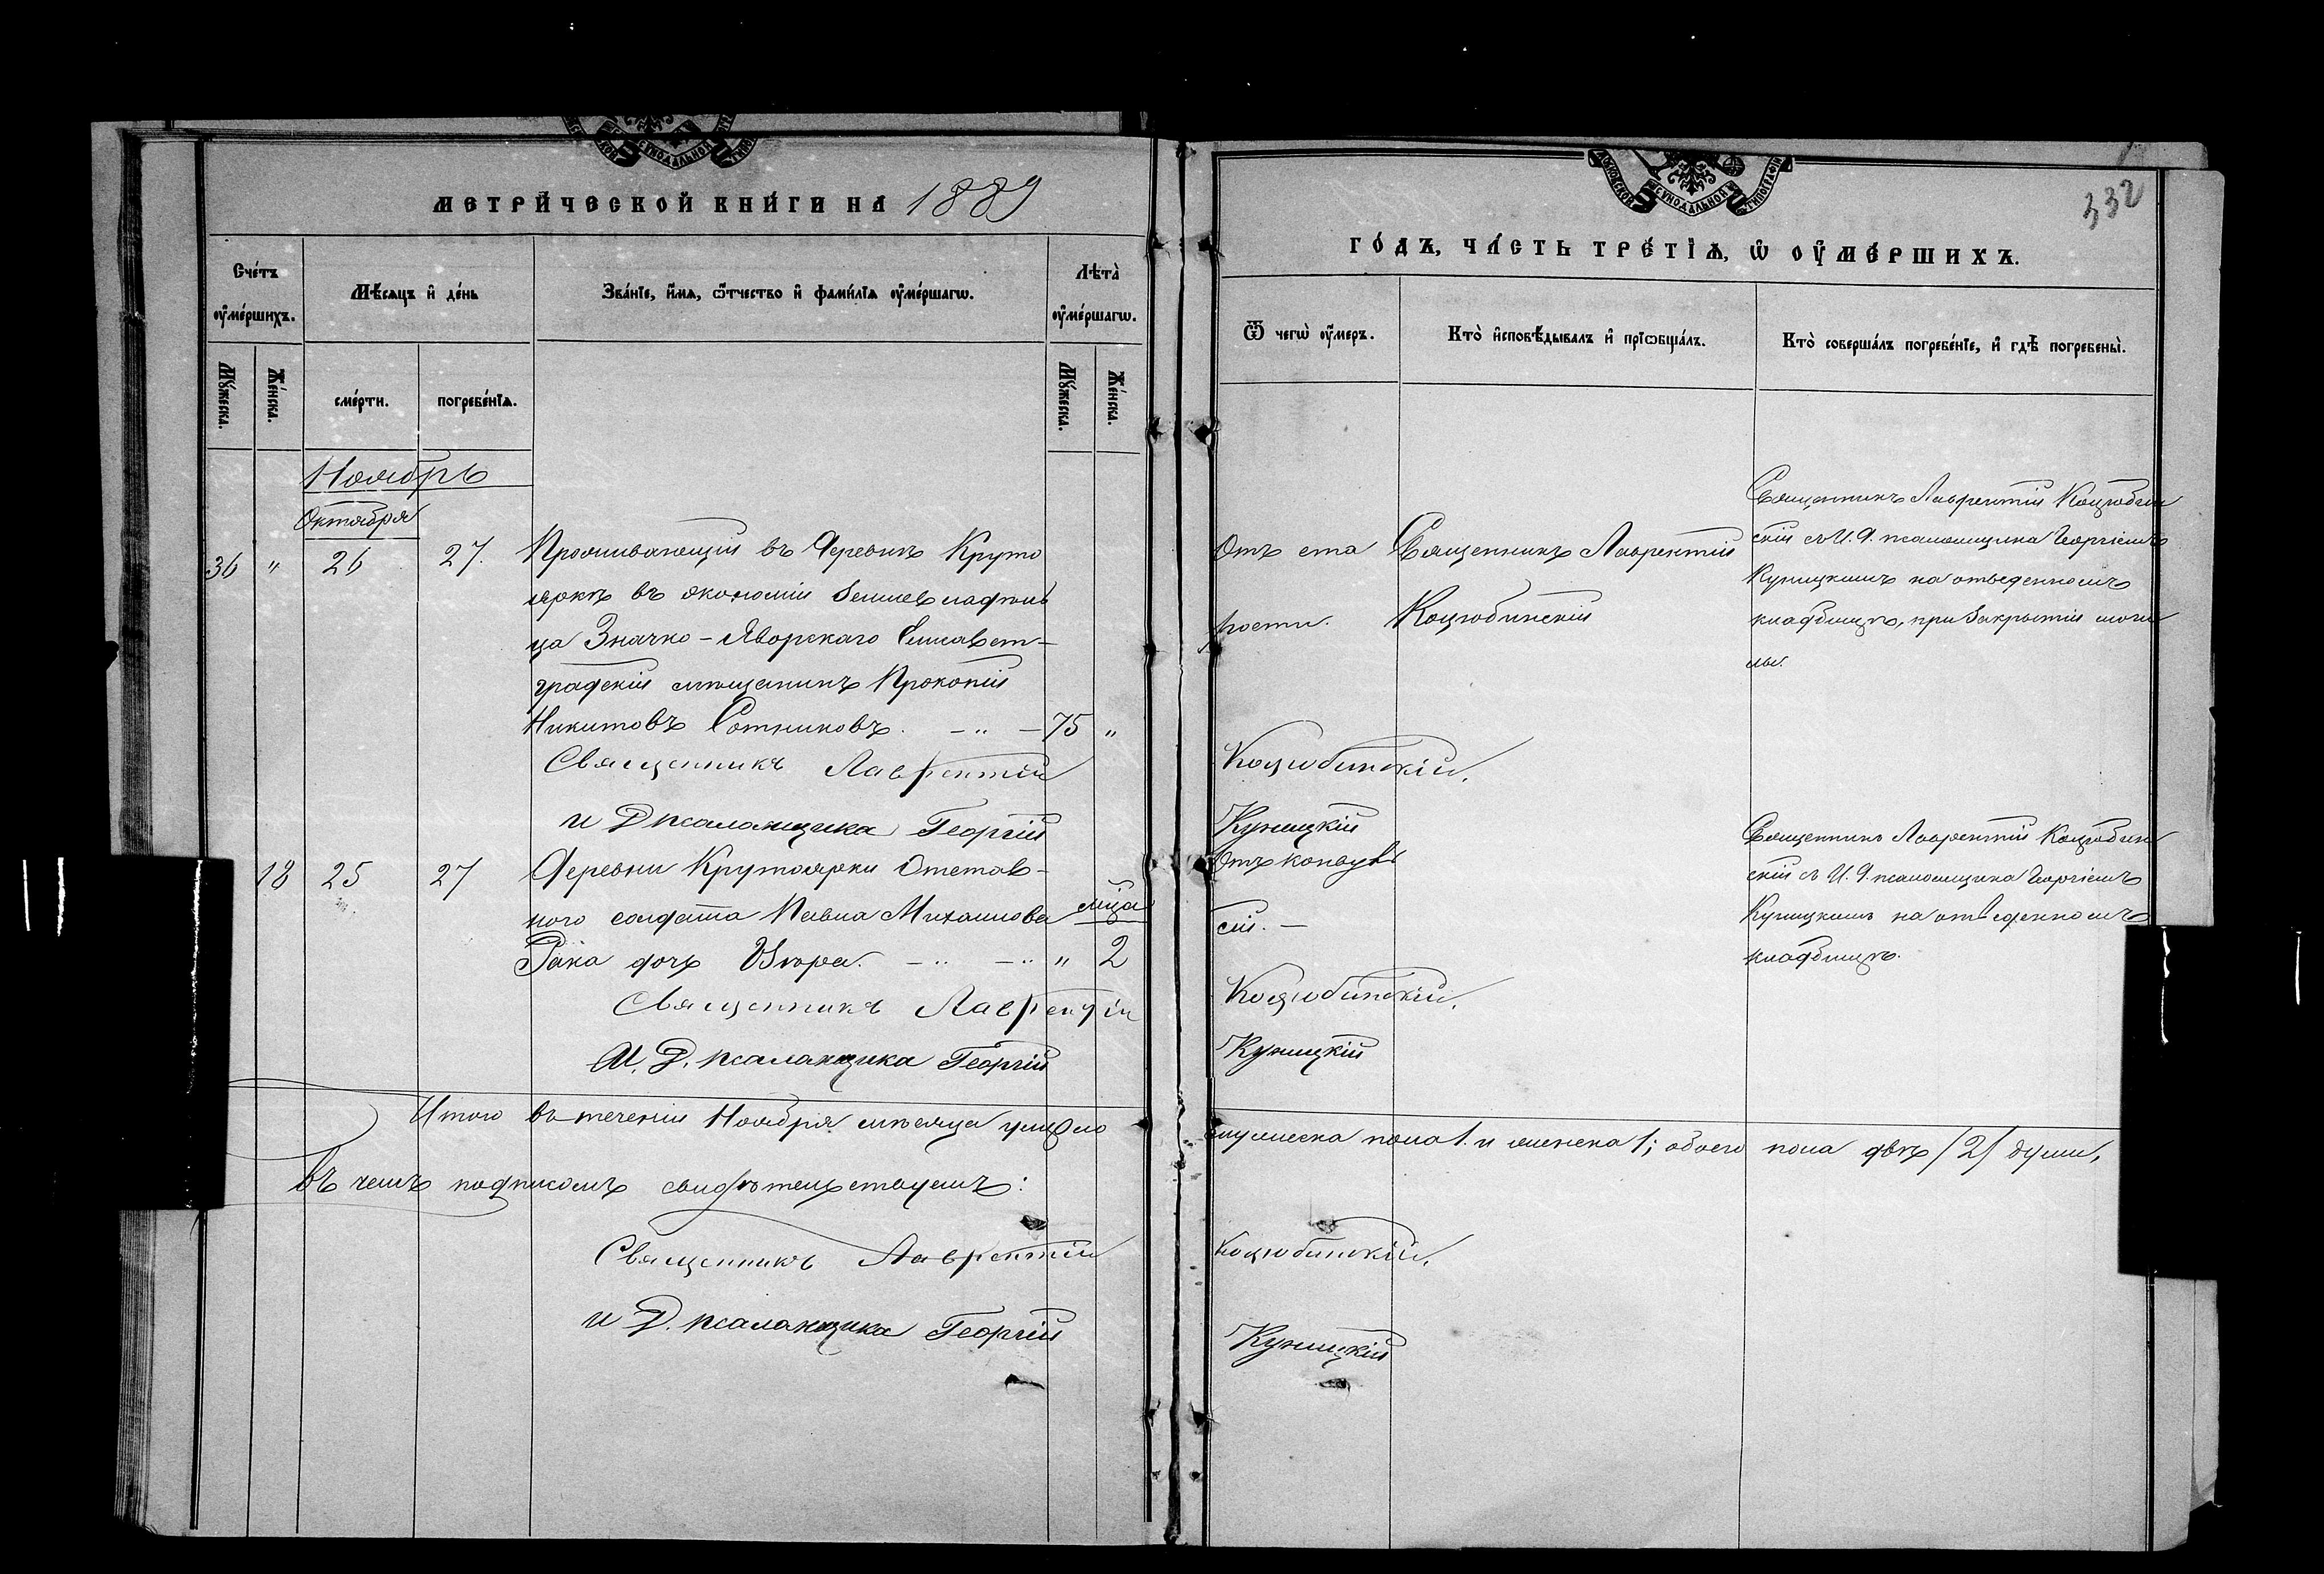 МЕТРИ́ЧЕСКОЙ КНИ́ГИ НА 1889
Сче́тъ ᲂу҆ме́ршихъ.
Мѣ́сяцъ и҆ де́нь
Зва́нїе, и҆́мѧ, ѻ҆́тчество и҆ фами́лїѧ ᲂу҆ме́ршагѡ.
Лѣ́та ᲂу҆ме́ршагѡ.
Мꙋ́жеска.
Же́нска.
сме́рти.
погребе́нїѧ.
Мꙋ́жеска.
Же́нска.
Ноябрь
Октября
36 " 26 27. Проживающій въ Деревнѣ Круто
яркѣ въ экономіи Землевладѣль
ца Значко-Яворскаго Елисавет-
градскій мѣщанинъ Прокопій
Никитовъ Сотниковъ. - " - 75 "
Священникъ Лаврентій
И Д псаломщика Георгій
18 25 27 Деревни Крутоярки Отстав-
ного солдата Павла Михайлова мѣсца
Рака дочь Вѣра. - " - " " 2
Священникъ Лаврентій
И. Д. псаломщика Георгій
Итого въ теченіи Ноября мѣсяца умерло
въ чемъ подписомъ свидѣтельствуемъ:
Священникъ Лаврентій
И Д. псаломщика Георгій
332
МОСКОВСКОЙ СѴНОДАЛЬНОЙ ТИПОГРАФІИ
ГО́ДЪ, ЧА́СТЬ ТРЕ́ТЇѦ, Ѡ҆ ОУ҆МЕ́РШИХЪ.
Ѿ чегѡ̀ ᲂу҆́меръ.
Кто̀ и҆сповѣ́дывалъ и҆ прїѡбща́лъ.
Кто̀ соверша́лъ погребе́нїе, и҆ гдѣ̀ погребены̀.
Отъ ста
рости.
Священникъ Лаврентій
Коцюбинскій
Священникъ Лаврентій Коцюбин
скій съ И. Д. псаломщика Георгіемъ
Куницкимъ на отведенномъ
кладбищѣ, при Закрытіи моги
лы.
Коцюбинскій.
Куницкій
Отъ конвуль
сій. -
Священникъ Лаврентій Коцюбин
скій съ И. Д. псаломщика Георгіемъ
Куницкимъ на отведенномъ
кладбищѣ.
Коцюбинскій.
Куницкій
мужеска пола 1. и женска 1; обоего пола двѣ /2/ души,
Коцюбинскій.
Куницкій